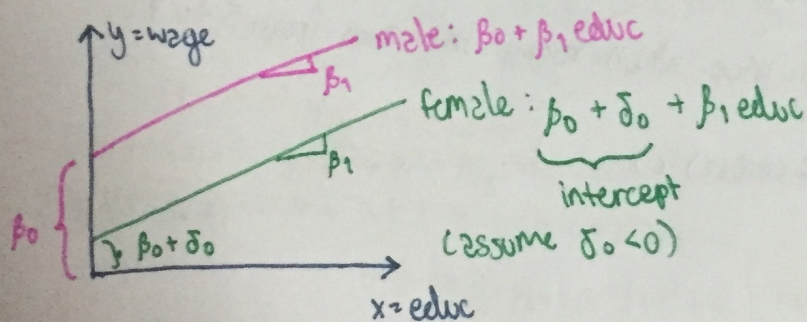 y=wage
male: β0 + β1 educ
β1
female: β0 + δ0 + β1 educ
β1
intercept
(assume δ0 <0)
β0
β0 + δ0
x= educ